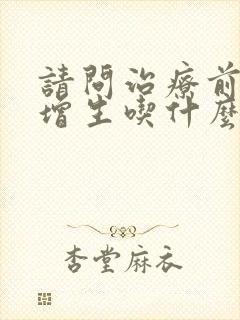 請問治療前
增生喫什麼
杏堂麻衣